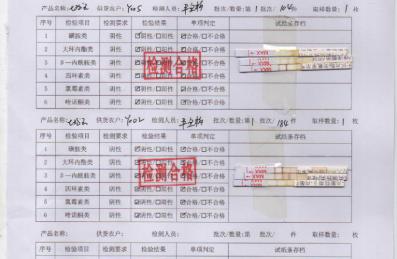 产品名称: 供货农户: Y05 检测人员: 批次/数量:第 1 批次/ 104 件 取样数量: 1 枚
序号 检验项目 检测要求 检验结果 单项判定 试纸条存档
1 磺胺类 阴性 ☑阴性/□阳性 ☑合格/□不合格
2 大环内酯类 阴性 ☑阴性/□阳性 ☑合格/□不合格
3 β一内酰胺类 阴性 ☑阴性/□阳性 ☑合格/□不合格
4 四环素类 阴性 ☑阴性/□阳性 ☑合格/□不合格
5 氯霉素类 阴性 ☑阴性/□阳性 ☑合格/□不合格
6 喹诺酮类 阴性 ☑阴性/□阳性 ☑合格/□不合格
检测合格
MAX
产品名称: 供货农户: Y02 检测人员: 批次/数量:第 1 批次/ 184 件 取样数量: 1 枚
序号 检验项目 检测要求 检验结果 单项判定 试纸条存档
1 磺胺类 阴性 ☑阴性/□阳性 ☑合格/□不合格
2 大环内酯类 阴性 ☑阴性/□阳性 ☑合格/□不合格
3 β一内酰胺类 阴性 ☑阴性/□阳性 ☑合格/□不合格
4 四环素类 阴性 ☑阴性/□阳性 ☑合格/□不合格
5 氯霉素类 阴性 ☑阴性/□阳性 ☑合格/□不合格
6 喹诺酮类 阴性 ☑阴性/□阳性 ☑合格/□不合格
检测合格
MAX
产品名称: 供货农户: 检测人员: 批次/数量:第 批次/ 件 取样数量: 枚
序号 检验项目 检测要求 检验结果 单项判定 试纸条存档